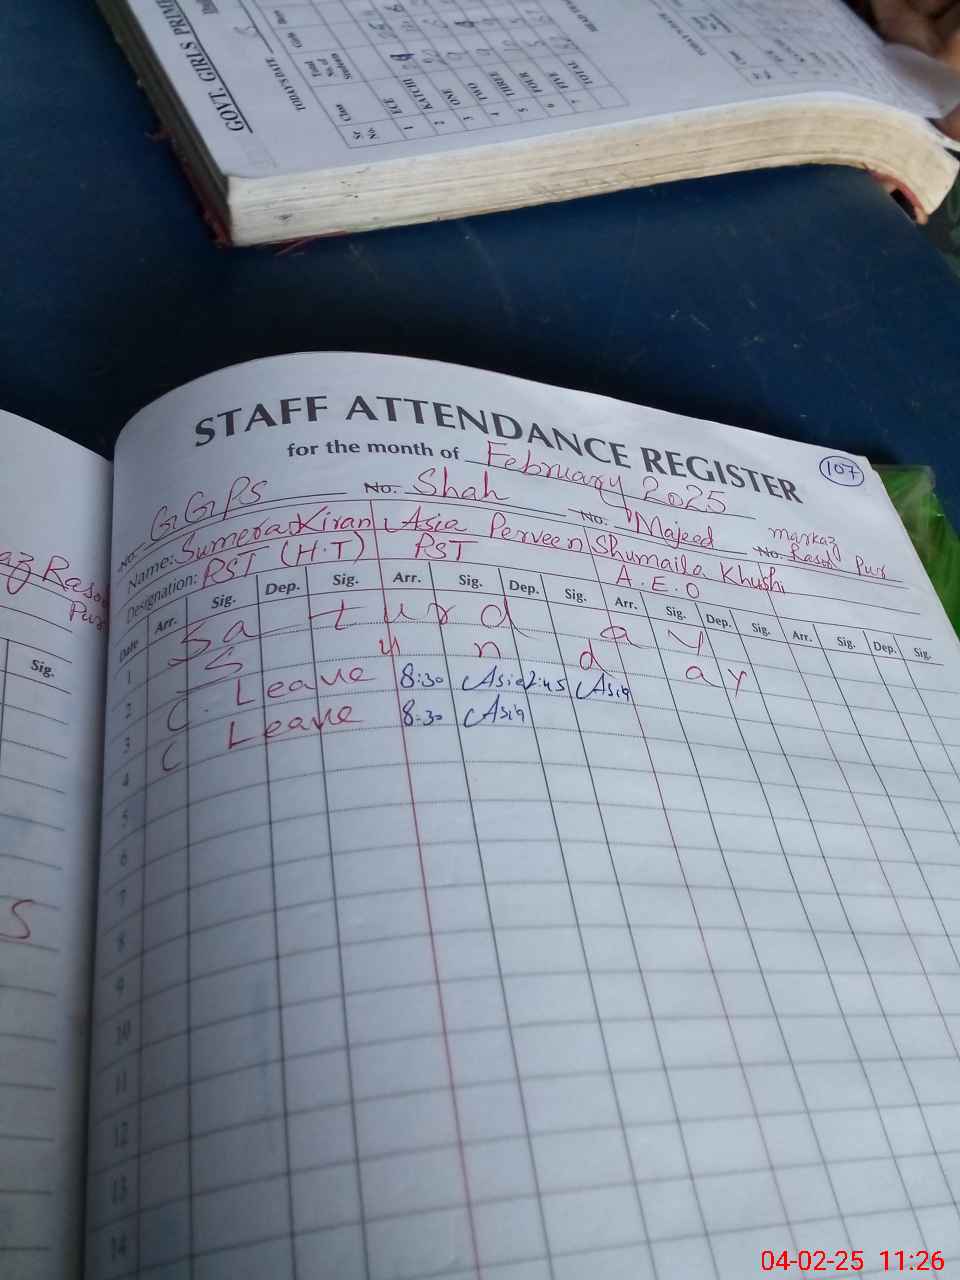 GOVT. GIRLS PRIM
TODAY'S DATE
Sr. No. Class Total No. of Students
1 ECE
2 KATCHI
3 ONE
4 TWO
5 THREE
6 FOUR
7 FIVE
TOTAL
STAFF ATTENDANCE REGISTER
107
for the month of February 2025
No. GGPS No. Shah No. Majeed No. markaz Rasool Pur
Name: Sumera Kiran Asia Perveen Shumaila Khushi
Designation: PST (H.T) PST A.E.O
Date Arr. Sig. Dep. Sig. Arr. Sig. Dep. Sig. Arr. Sig. Dep. Sig. Arr. Sig. Dep. Sig.
1 Saturday
2 Sunday
3 C. Leave 8:30 Asia Asia
4 C Leave 8:30 Asia
5
6
7
8
9
10
11
12
13
14
az Rasool
Pur
Sig.
S
04-02-25 11:26